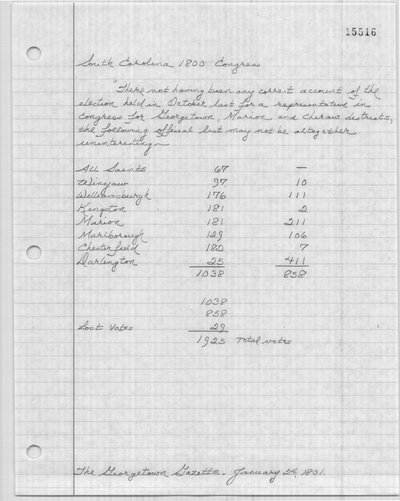 15516
South Carolina 1800 Congress
"There not having been any correct account of the
election held in October last for a representative in
Congress for Georgetown, Marion and Cheraw districts,
the following official list may not be altogether
uninteresting—
All Saints 67 —
Winyaw 97 10
Williamsburgh 176 111
Kingston 181 2
Marion 181 211
Marlborough 129 106
Chesterfield 182 7
Darlington 25 411
1038 858
1038
858
Lost Votes 29
1925 Total votes
The Georgetown Gazette. January 24, 1801.